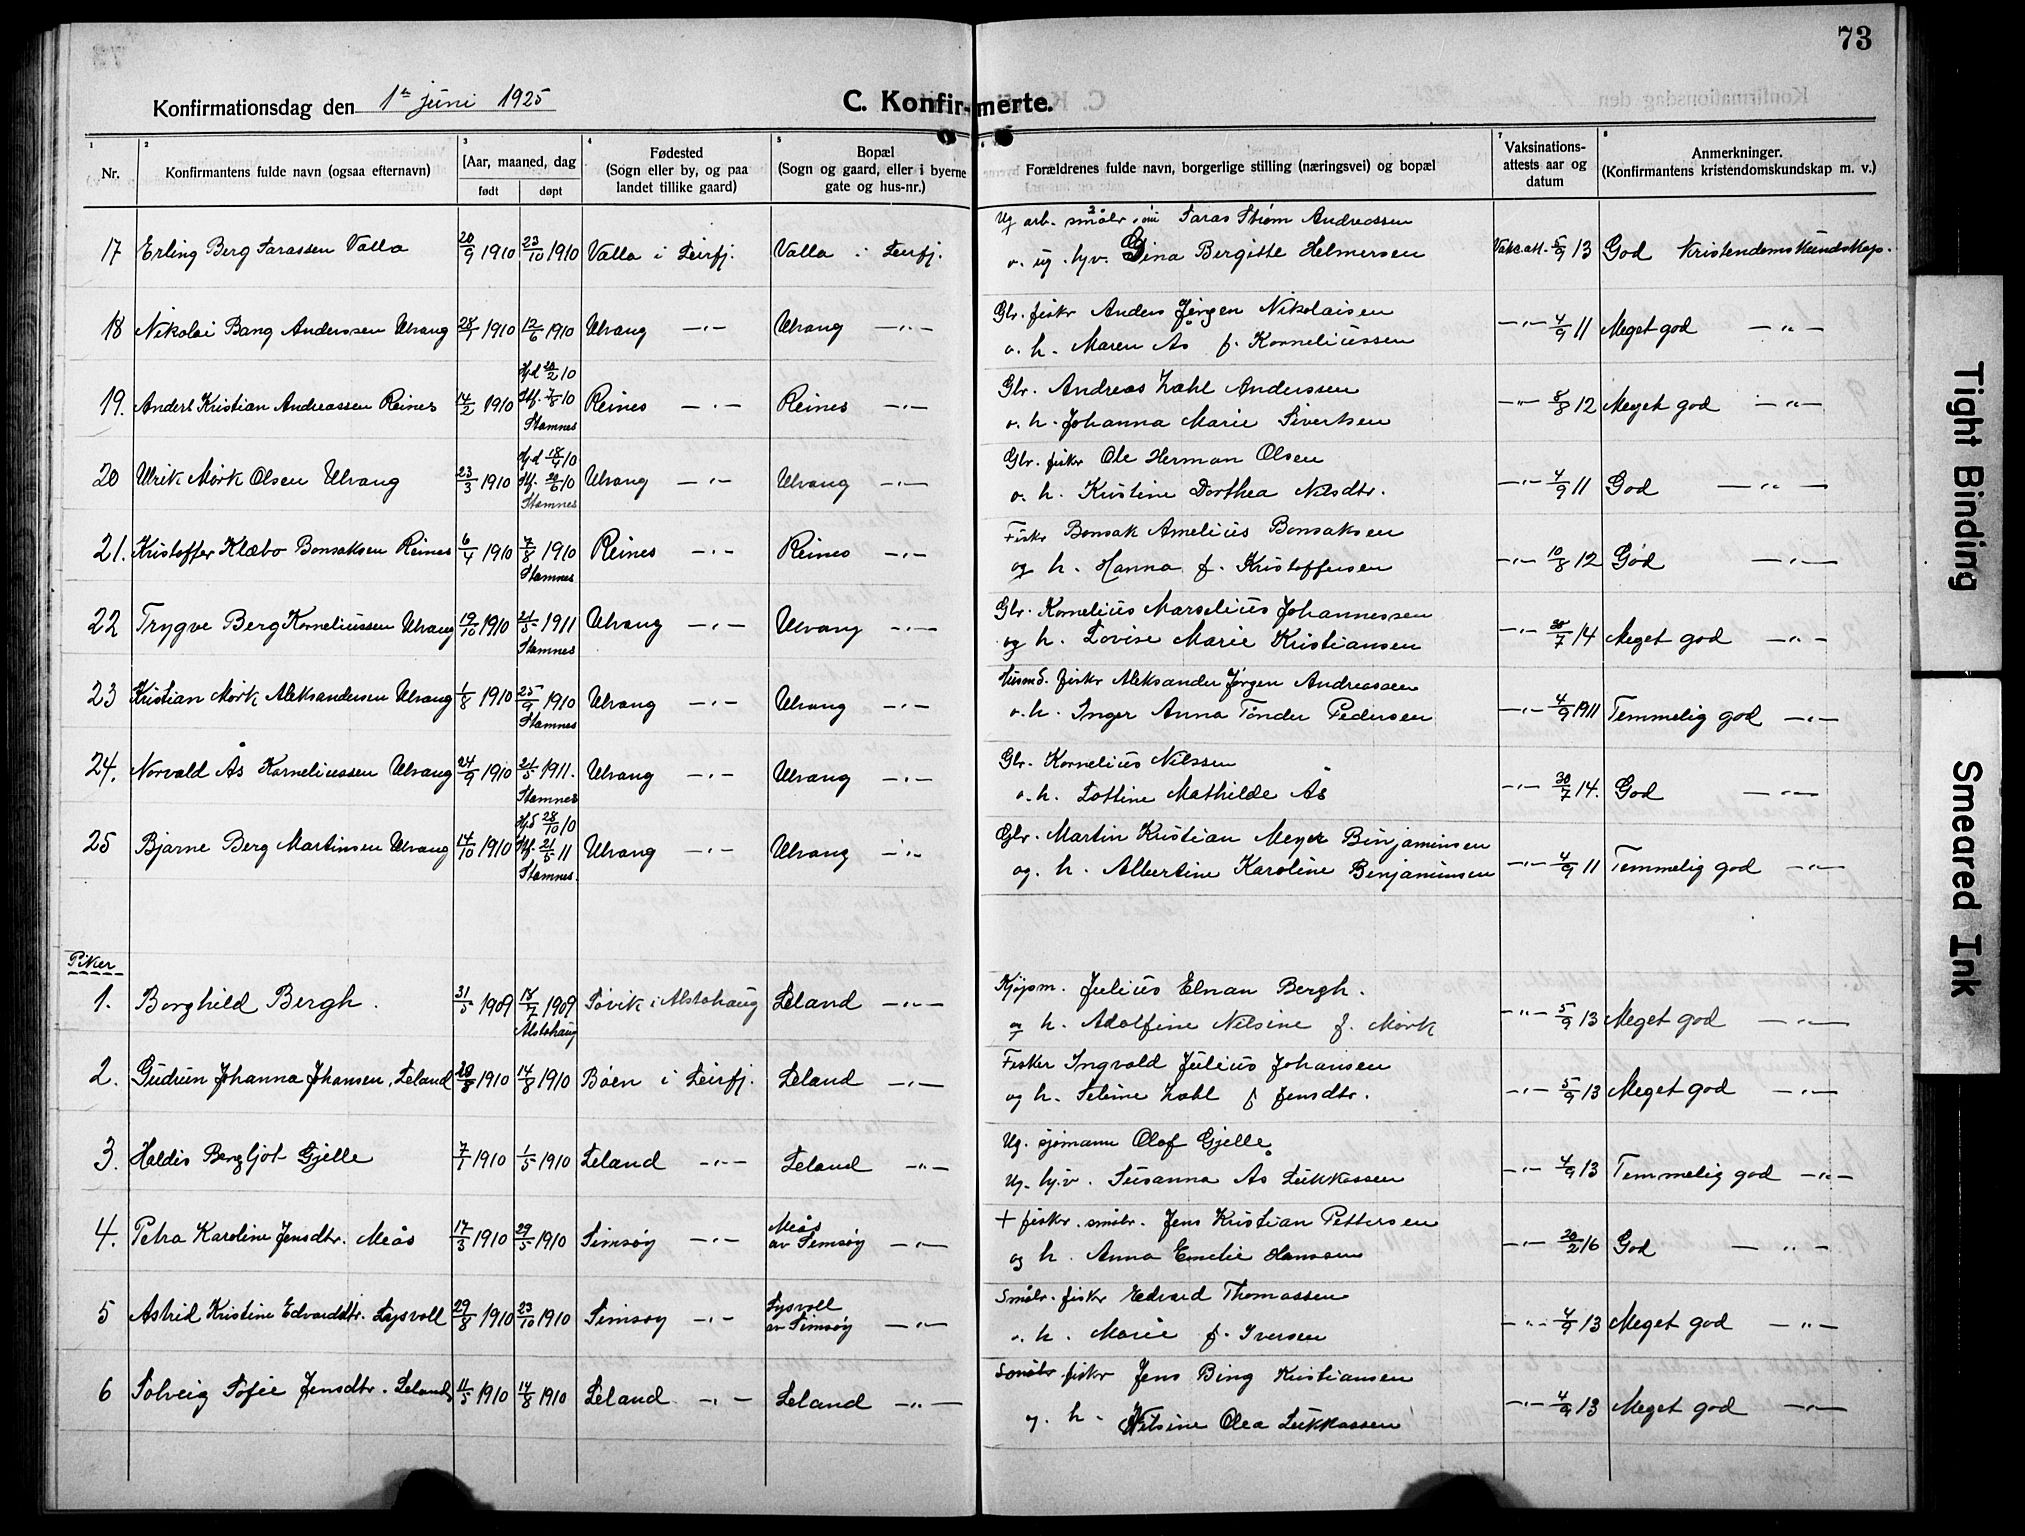 73
Konfirmationsdag den 1ste juni 1925
C. Konfirmerte.
1 2 3 4 5 6 7 8
Nr. Konfirmantens fulde navn (ogsaa efternavn) Aar, maaned, dag født døpt Fødested (Sogn eller by, og paa landet tillike gaard) Bopæl (Sogn og gaard, eller i byerne gate og hus-nr.) Forældrenes fulde navn, borgerlige stilling (næringsvei) og bopæl Vaksinations-attests aar og datum Anmerkninger. (Konfirmantens kristendomskundskap m. v.)
17 Erling Berg Larassen Valla 20/9 1910 23/10 1910 Valla i Leirfj. Valla i Leirfj. Ug arb. Laras Strøm Andreassen
o. ug. hjv. Gina Bergitte Helmersen Vakc.att. 5/9 13 God Kristendomskundskap.
18 Nikolai Bang Anderssen Ulvang 1910 12/6 1910 Ulvang —"— Ulvang —"— Gbr. fisker Anders Jörgen Nikolaisen
o. h. Maren Ås f. Korneliussen —"— 4/9 11 Meget god —"—
19. Anders Kristian Andreassen Reines 14/2 1910 Hjd 20/2 10 Stf. 7/8 10 Stamnes Reines —"— Reines —"— Gbr. Andreas Zahl Anderssen
o. h. Johanna Marie Sivertsen —"— 8/8 12 Meget god —"—
20 Ulrik Mörk Olsen Ulvang 23/3 1910 Hjd 18/4 10 Stf. 10 Stamnes Ulvang —"— Ulvang —"— Gbr. fisker Ole Herman Olsen
o. h. Kristine Dorthea Nilsdtr. —"— 4/9 11 God —"—
21. Kristoffer Klæbo Bonsaksen Reines 6/4 1910 7/8 1910 Stamnes Reines —"— Reines —"— Fisker Bonsak Amelius Bonsaksen
og h. Hanna f. Kristoffersen —"— 10/8 12 God —"—
22 Trygve Berg Korneliussen Ulvang 19/10 1910 21/5 1911 Stamnes Ulvang —"— Ulvang —"— Gbr. Kornelius Marselius Johannessen
og h. Lovise Marie Kristiansen —"— 30/7 14 Meget god —"—
23 Kristian Mörk Aleksandersen Ulvang 1/8 1910 25/9 1910 Stamnes Ulvang —"— Ulvang —"— Husmd. fisker Aleksander Jörgen Andreassen
o. h. Inger Anna Tönder Pedersen —"— 4/9 1911 Temmelig god —"—
24. Norvald Ås Korneliussen Ulvang 24/9 1910 21/5 1911. Stamnes Ulvang —"— Ulvang —"— Gbr. Kornelius Nilssen
o. h. Lottine Mathilde Ås —"— 30/7 14. God —"—
25 Bjarne Berg Martinsen Ulvang 14/10 1910 Hjd 28/10 10 Stf. 21/5 11 Stamnes. Ulvang —"— Ulvang —"— Gbr. Martin Kristian Meyer Binjaminsen
og. h. Albertine Karoline Benjaminsen —"— 4/9 11 Temmelig god —"—
Piker
1. Borghild Bergh. 31/5 1909 18/7 1909 Alstahaug Søvik i Alstahaug Leland —"— Kjøpm. Julius Elnan Bergh.
og h. Adolfine Nilsine f. Mörk —"— 5/9 13 Meget god —"—
2. Gudrun Johanna Johansen, Leland 1910 14/8 1910 Bøen i Leirfj. Leland —"— Fisker Ingvald Julius Johansen
og h. Seline Zahl f. Jensdtr. —"— 5/9 13 Meget god —"—
3. Haldis Bergljot Gjelle 7/1 1910 1/5 1910 Leland —"— Leland —"— Ug. sjømann Olaf Gjelle
Ug. hj.v. Susanna Ås Lukkassen —"— 4/9 13 Temmelig god —"—
4. Petra Karoline Jensdtr. Meås 17/3 1910 29/5 1910 Simsøy —"— Meås av Simsøy —"— + fisker. småbr. Jens Kristian Pettersen
og h. Anna Emelie Hanssen —"— 20/2 16 God —"—
5 Astrid Kristine Edvardsdtr. Lysvoll 29/8 1910 23/10 1910 Simsøy —"— Lysvoll av Simsøy —"— Småbr. fisker Edvard Thomassen
o. h. Marie f. Iversen —"— 4/9 13 Meget god —"—
6 Solveig Sofie Jensdtr. Leland 11/5 1910 14/8 1910 Leland —"— Leland —"— Småbr fisker Jens Bing Kristiansen
o. h. Nilsine Olea Lukkassen —"— 4/9 13 Meget god —"—
Tight Binding
Smeared Ink